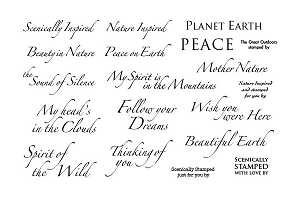 Scenically Inspired
Nature Inspired
Planet Earth
PEACE
The Great Outdoors
stamped by
Beauty in Nature
Peace on Earth
Mother Nature
the
Sound of Silence
My Spirit is
in the Mountains
Nature Inspired
and stamped
for you by
My head's
in the Clouds
Follow your
Dreams
Wish you
were Here
Spirit of
the Wild
Thinking of
you
Beautiful Earth
Scenically Stamped
just for you by
SCENICALLY
STAMPED
WITH LOVE BY